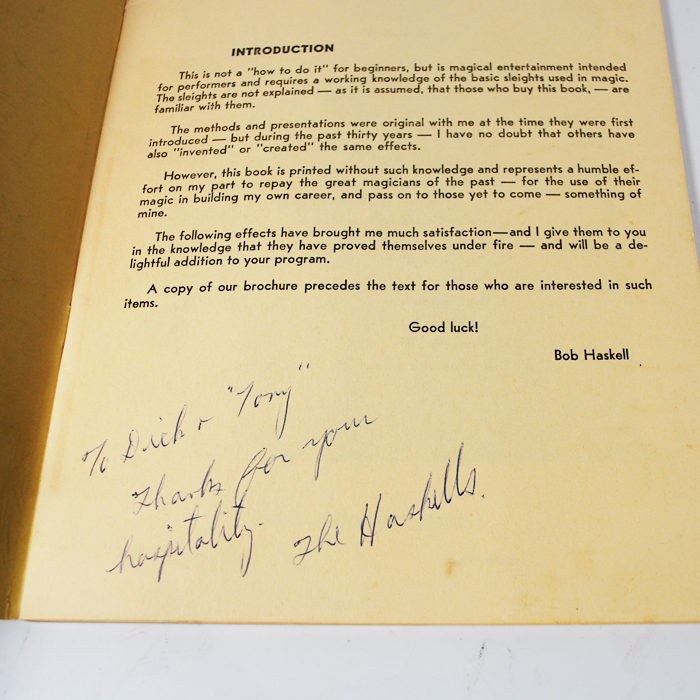 INTRODUCTION
This is not a "how to do it" for beginners, but is magical entertainment intended
for performers and requires a working knowledge of the basic sleights used in magic.
The sleights are not explained — as it is assumed, that those who buy this book, — are
familiar with them.
The methods and presentations were original with me at the time they were first
introduced — but during the past thirty years — I have no doubt that others have
also "invented" or "created" the same effects.
However, this book is printed without such knowledge and represents a humble ef-
fort on my part to repay the great magicians of the past — for the use of their
magic in building my own career, and pass on to those yet to come — something of
mine.
The following effects have brought me much satisfaction—and I give them to you
in the knowledge that they have proved themselves under fire — and will be a de-
lightful addition to your program.
A copy of our brochure precedes the text for those who are interested in such
items.
Good luck!
Bob Haskell
To Dick & "Tony"
Thanks for your
hospitality.
The Haskells.